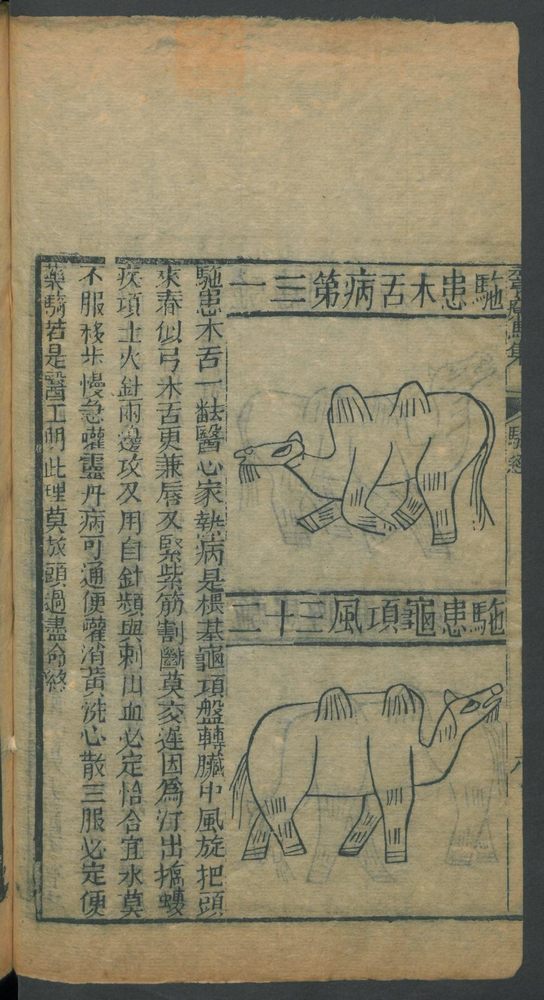 駞患木舌病第三一
駞患龜項風三十二
駞患木舌一㽽醫心家熱病是根基龜項盤轉臟中風旋把頭
來春似弓木舌更兼唇又緊紫筋割斷莫交遲因爲汗出搐
疾項上火針兩邊攻又用自針頻與刺出血必定恰合宜水莫
不服移步慢急嚾靈丹病可通便嚾消黃洗心散三服必定便
藥騐若是醫工明此理莫放頭過盡命終